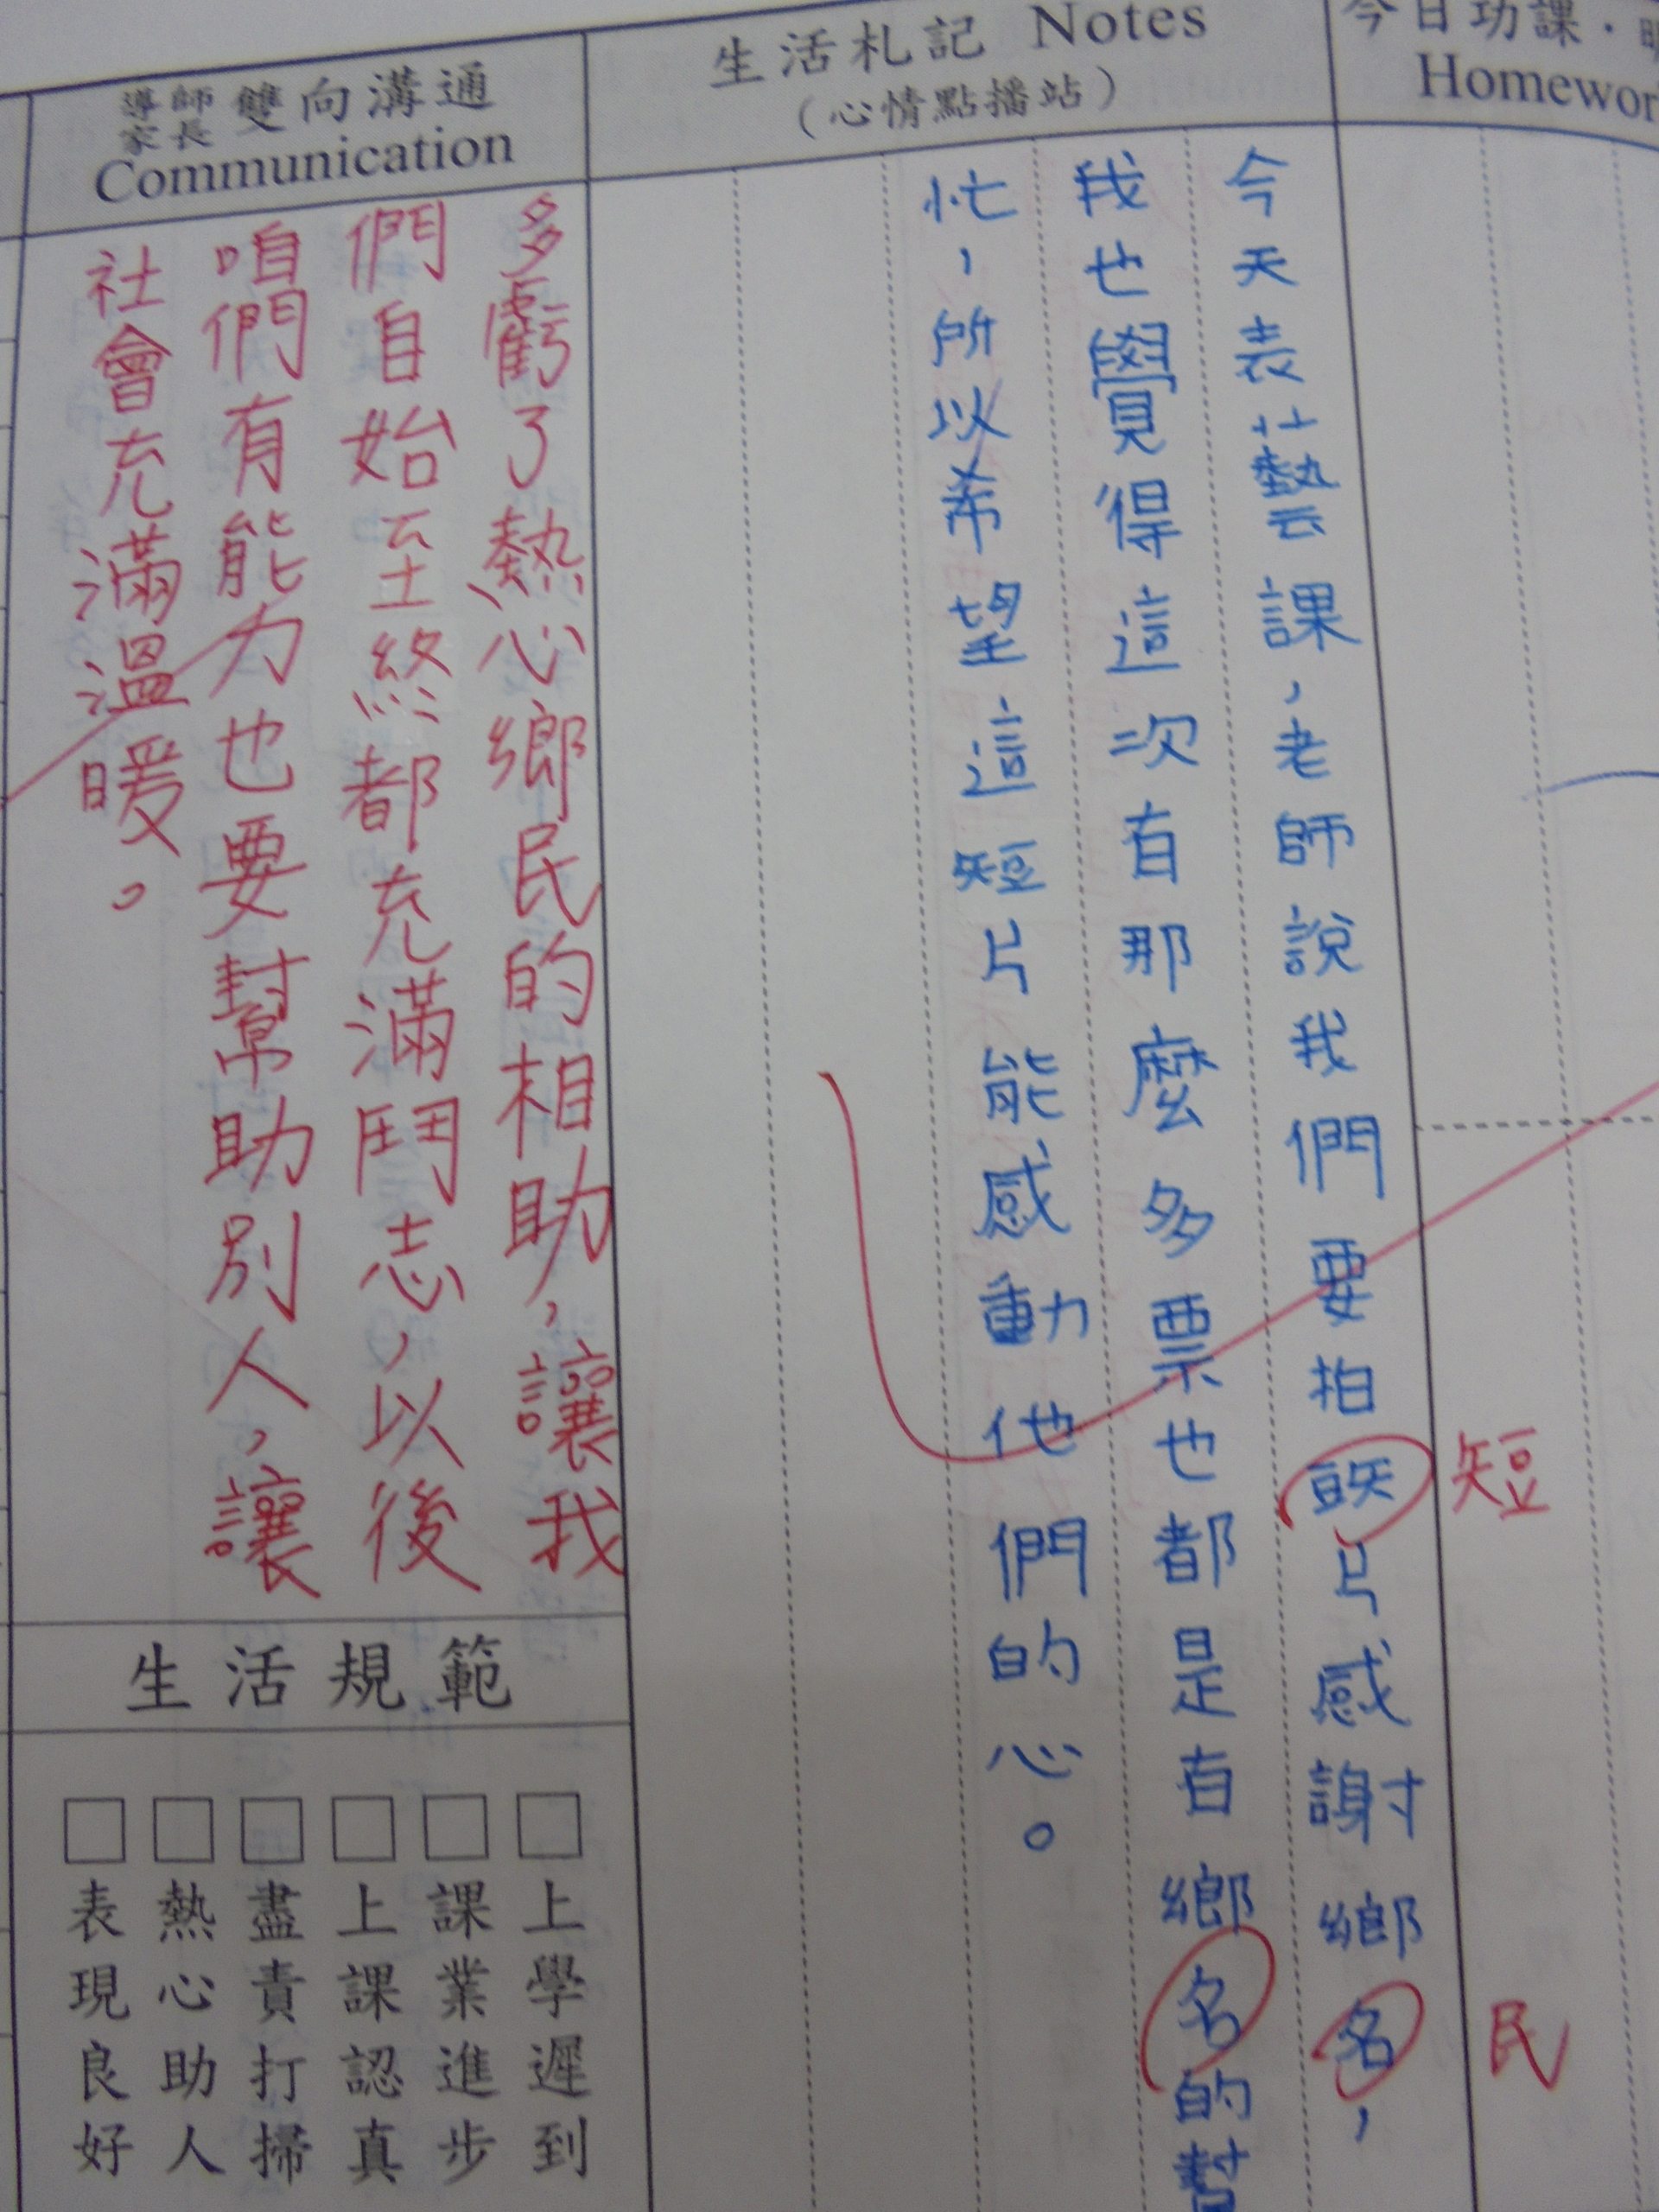 今日功課．
Homewor
生活札記 Notes
（心情點播站）
導師家長雙向溝通
Communication
今天表藝課，老師說我們要拍短片感謝鄉名，
短
民
我也覺得這次有那麼多票也都是有鄉名的幫
忙，所以希望這短片能感動他們的心。
多虧了熱心鄉民的相助，讓我
們自始至終都充滿鬥志，以後
咱們有能力也要幫助別人，讓
社會充滿溫暖。
生活規範
上學遲到
課業進步
上課認真
盡責打掃
熱心助人
表現良好